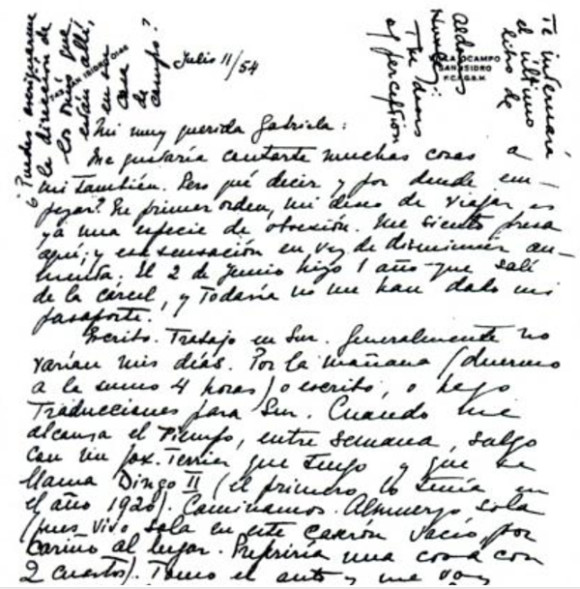 ¿Puedes enviarme
la dirección de
los míos que
están allí,
en su
casa
de
campo?
SAN ISIDRO
Julio 11/54
OCAMPO
SAN ISIDRO
F.C.G.B.M.
Te interesará
el último
libro de
Aldous
Huxley:
The Doors
of perception
Mi muy querida Gabriela:
Me gustaría contarte muchas cosas a
mí también. Pero qué decir y por donde em-
pezar? En primer orden, mi deseo de viajar es
ya una especie de obsesión. Me siento presa
aquí; y esa sensación en vez de disminuir au-
menta. El 2 de Junio hizo 1 año que salí
de la cárcel, y todavía no me han dado mi
pasaporte!
Escribo. Trabajo en Sur. Generalmente no
varían mis días. Por la mañana (duermo
a lo sumo 4 horas) o escribo, o hago
traducciones para Sur. Cuando me
alcanza el tiempo, entre semana, salgo
con un fox-terrier que tengo y que se
llama Dingo II (el primero lo tenía en
el año 1920). Caminamos. Almuerzo sola
(pues vivo sola en este caserón vacío, por
cariño al lugar. Preferiría una casa con
2 cuartos). Tomo el auto y me voy